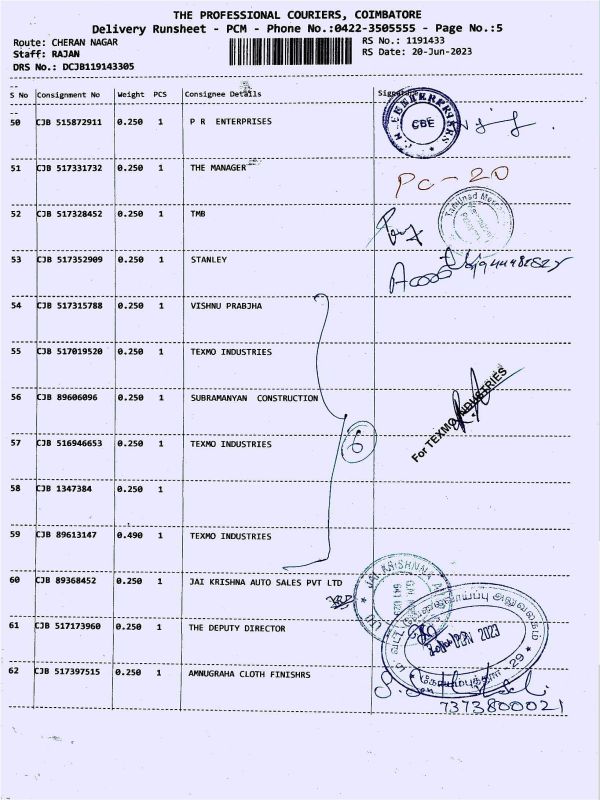 THE PROFESSIONAL COURIERS, COIMBATORE
Delivery Runsheet - PCM - Phone No.:0422-3505555 - Page No.:5
Route: CHERAN NAGAR RS No.: 1191433
Staff: RAJAN RS Date: 20-Jun-2023
DRS No.: DCJB119143305
S No Consignment No Weight PCS Consignee Details Signature
50 CJB 515872911 0.250 1 P R ENTERPRISES
ENTERPRISERS
CBE
51 CJB 517331732 0.250 1 THE MANAGER PC-20
52 CJB 517328452 0.250 1 TMB
53 CJB 517352909 0.250 1 STANLEY
54 CJB 517315788 0.250 1 VISHNU PRABJHA
55 CJB 517019520 0.250 1 TEXMO INDUSTRIES
56 CJB 89606096 0.250 1 SUBRAMANYAN CONSTRUCTION
For TEXMO INDUSTRIES
57 CJB 516946653 0.250 1 TEXMO INDUSTRIES 6
58 CJB 1347384 0.250 1
59 CJB 89613147 0.490 1 TEXMO INDUSTRIES
60 CJB 89368452 0.250 1 JAI KRISHNA AUTO SALES PVT LTD
61 CJB 517173960 0.250 1 THE DEPUTY DIRECTOR
JUN 2023
62 CJB 517397515 0.250 1 AMNUGRAHA CLOTH FINISHRS
7373800021